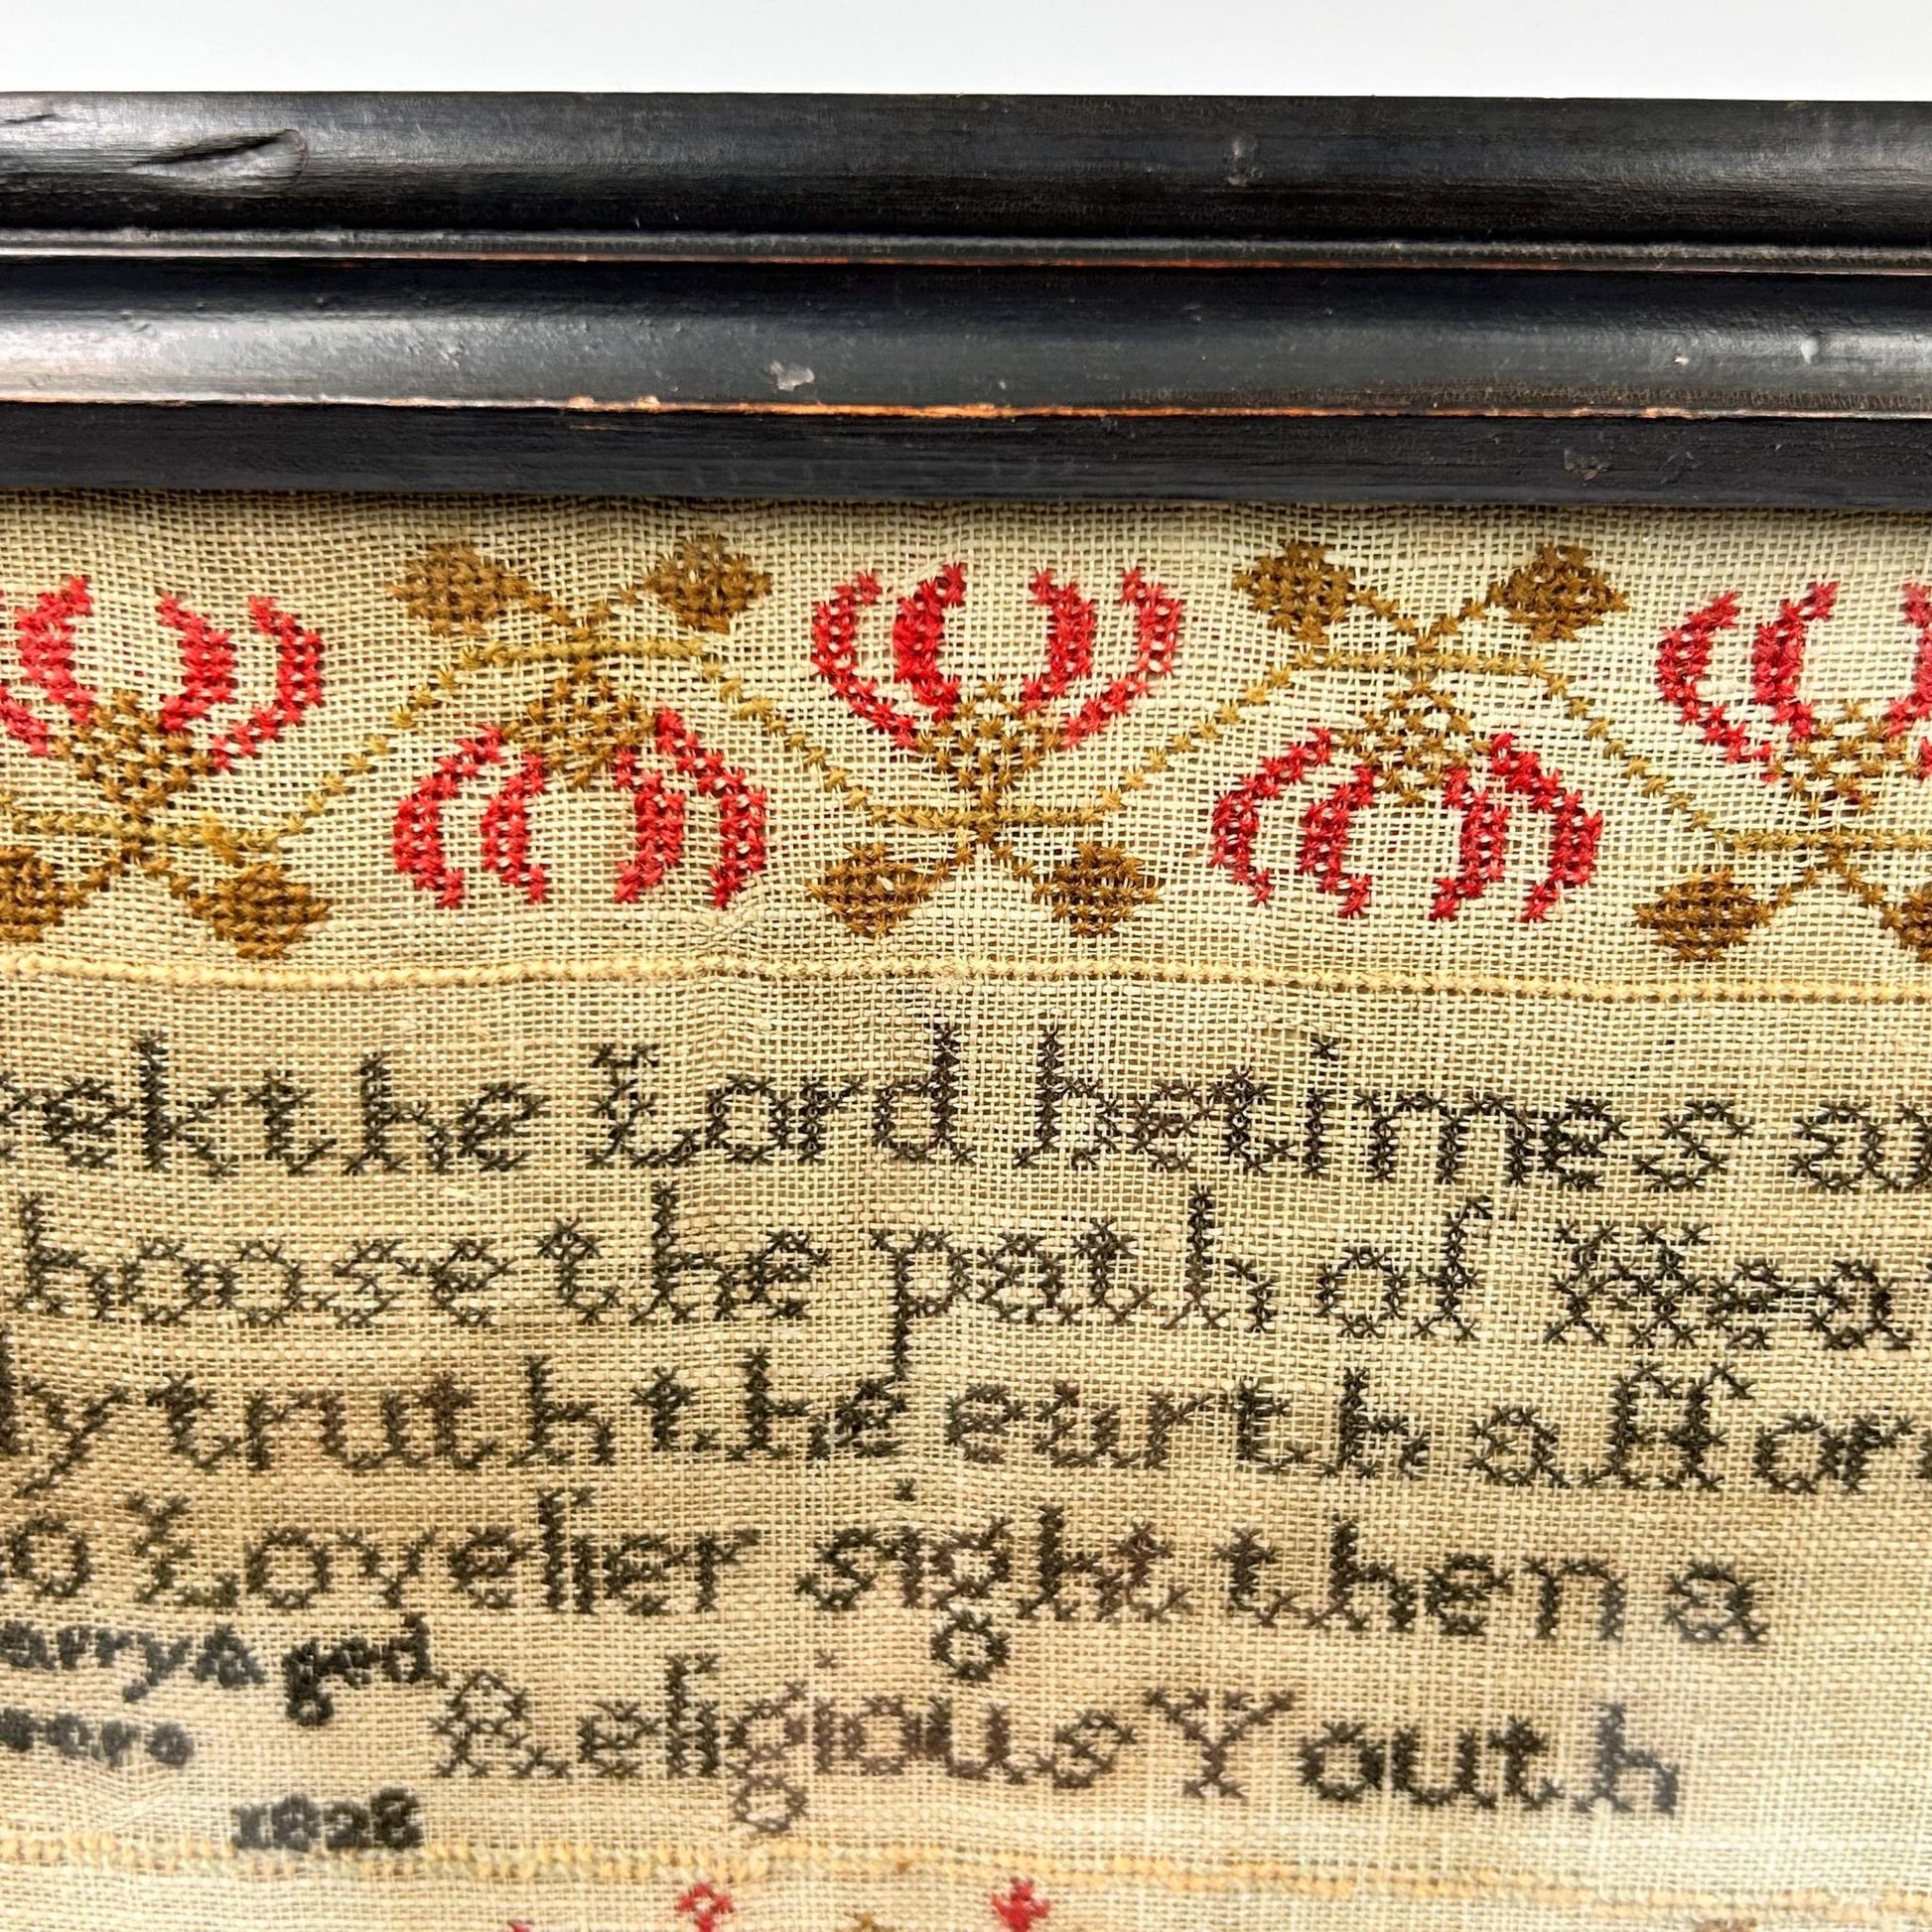 eek the Lord betimes a
hoose the path of Hea
ly truth the earth affor
o Lovelier sight then a
arry Aged
Religious Youth
1828